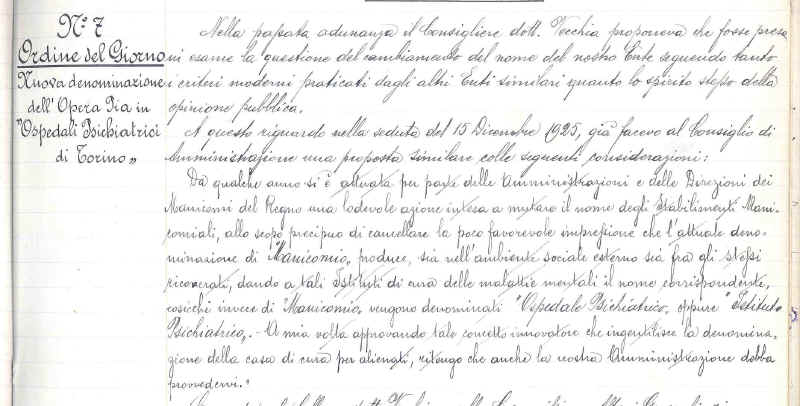 N.° 7
Ordine del Giorno
Nuova denominazione
dell'Opera Pia in
"Ospedali Psichiatrici
di Torino„
Nella passata adunanza il Consigliere dott. Vecchia proponeva che fosse presa
in esame la questione del cambiamento del nome del nostro Ente seguendo tanto
i criteri moderni praticati dagli altri Enti similari quanto lo spirito stesso della
opinione pubblica.
A questo riguardo nella seduta del 15 Dicembre 1925, già facevo al Consiglio di
Amministrazione una proposta similare colle seguenti considerazioni:
Da qualche anno si è attuata per parte delle Amministrazioni e delle Direzioni dei
Manicomi del Regno una lodevole azione intesa a mutare il nome degli Stabilimenti Mani-
comiali, allo scopo precipuo di cancellare la poco favorevole impressione che l'attuale deno-
minazione di Manicomio, produce, sia nell'ambiente sociale esterno sia fra gli stessi
ricoverati, dando a tali Istituti di cura delle malattie mentali il nome corrispondente,
cosicchè invece di "Manicomio„ vengono denominati "Ospedale Psichiatrico„ oppure "Istituto
Psichiatrico„. - A mia volta approvando tale concetto innovatore che ingentilisce la denomina-
zione della casa di cura per alienati, ritengo che anche la nostra Amministrazione debba
provvedervi."